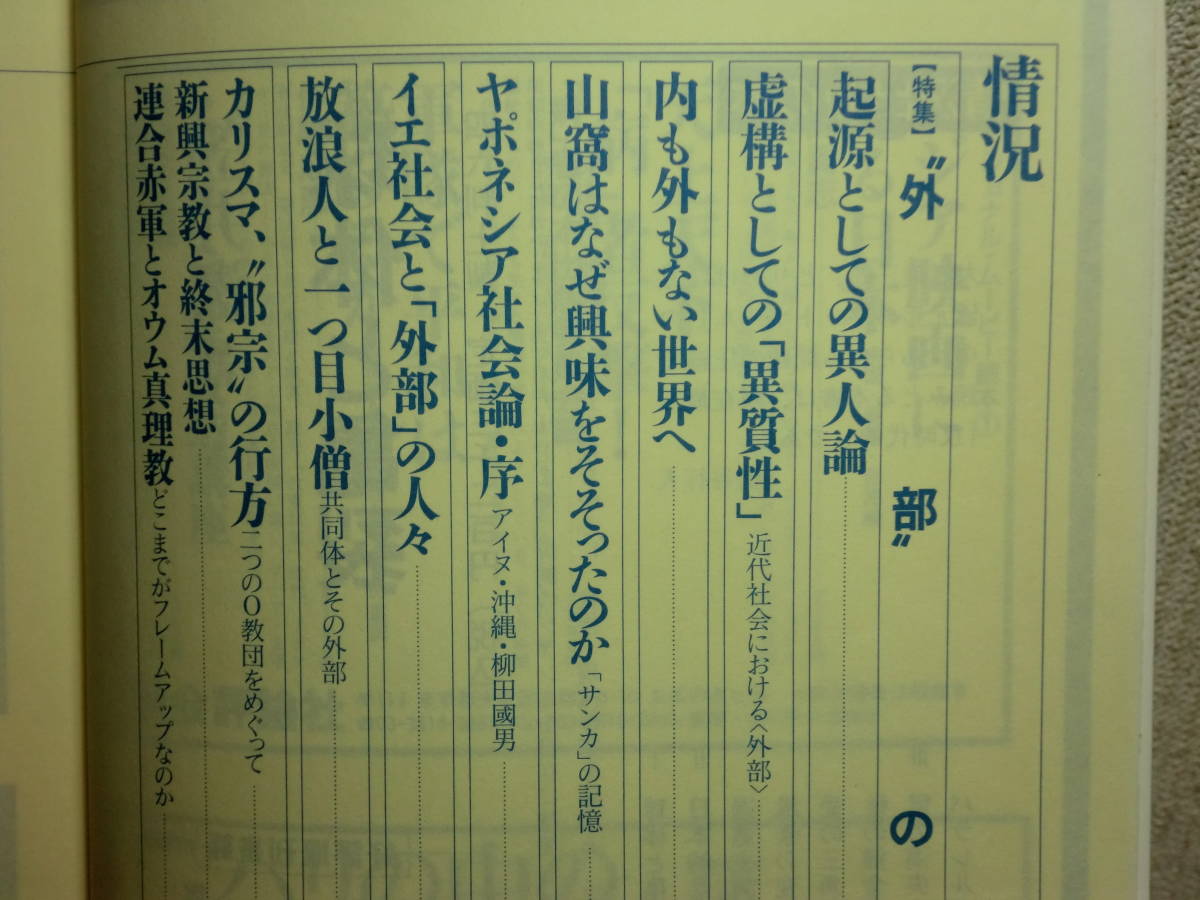 情況
【特集】〝外部〟の
起源としての異人論
虚構としての「異質性」近代社会における〈外部〉
内も外もない世界へ
山窩はなぜ興味をそそったのか「サンカ」の記憶
ヤポネシア社会論・序 アイヌ・沖縄・柳田國男
イエ社会と「外部」の人々
放浪人と一つ目小僧 共同体とその外部
カリスマ、〝邪宗〟の行方 二つのO教団をめぐって
新興宗教と終末思想
連合赤軍とオウム真理教 どこまでがフレームアップなのか